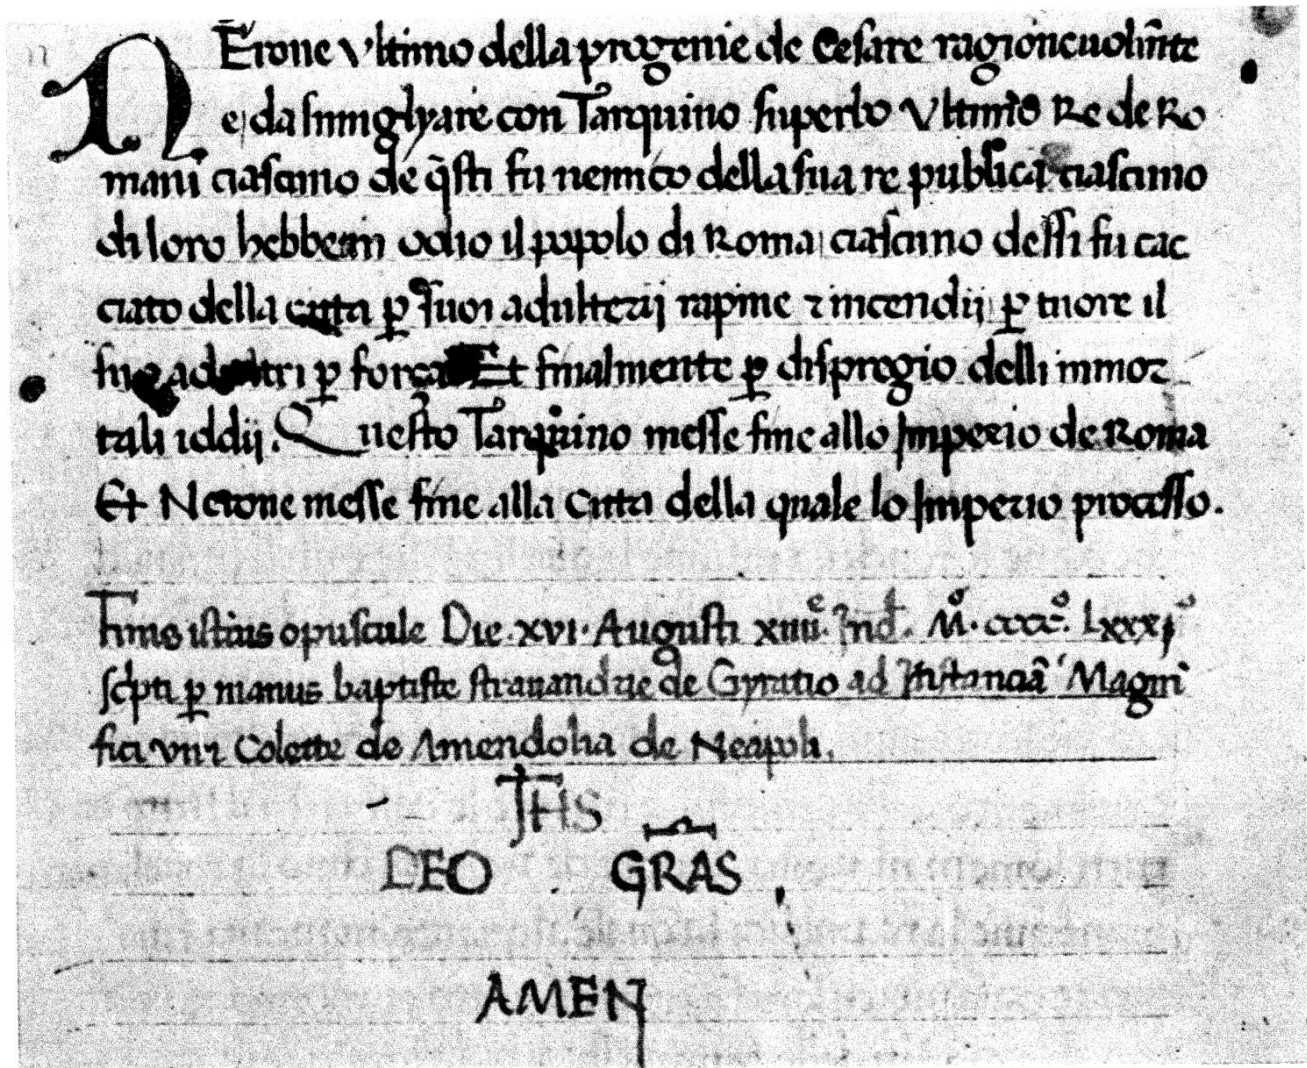 NErone Vltimo della progenie de Cesare ragioneuolm̃te
e da simiglyare con Tarquino superbo Vltimo Re de Ro
mani ciascuno de q̃sti fu nemico della sua re publica ciascuno
di loro hebbe in odio il popolo di Roma ciascuno dessi fu cac
ciato della citta ꝑ suoi adulterij rapine ⁊ incendij ꝑ tuore il
ꝑ força Et finalmente ꝑ dispregio delli immor
tali iddij. Questo Tarquino messe fine allo Imperio de Roma
Et Nerone messe fine alla Citta della quale lo Imperio processo.
Finis istius opuscule Die .xvi. Augusti xiiiiͤ. Ind. Mͦ. ccccͦ. Lxxxjͦ
sc̃pti ꝑ manus baptiste de Gyratio ad Instanciã Magni
fici viri Colette de Amendolia de Neapoli.
JHS
DEO . GRAS̄
AMEN